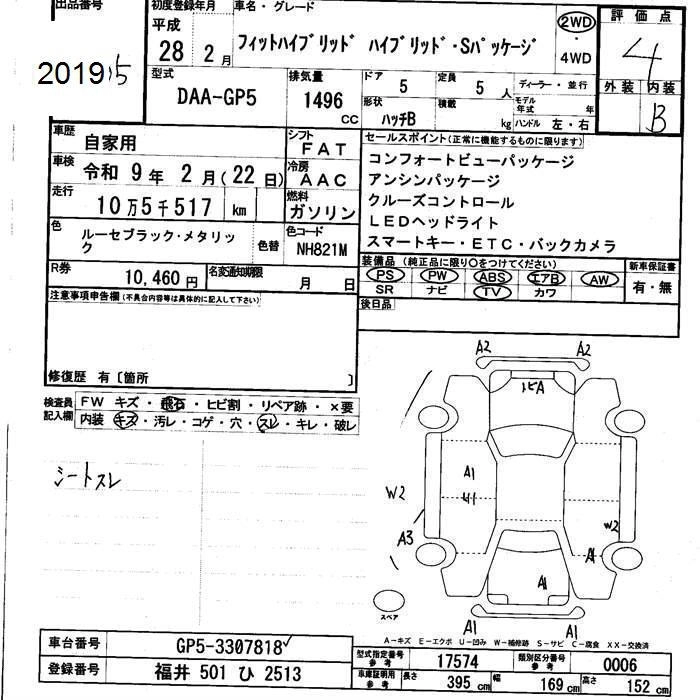 出品番号
2019 15
初度登録年月
平成
28 年 2 月
車名・グレード
フィットハイブリッド ハイブリッド・Sパッケージ
2WD
・
4WD
評価点
4
外装 内装
B
型式
DAA-GP5
排気量
1496
cc
ドア
5
定員
5 人
形状
ハッチB
積載
kg
ディーラー・並行
モデル年式 年
ハンドル 左・右
車歴
自家用
シフト
FAT
車検
令和 9 年 2 月 ( 22 日)
冷房
AAC
走行
10 万 5 千 517 km
燃料
ガソリン
色
ルーセブラック・メタリック
色替
色コード
NH821M
R券
10,460 円
名変通知期限
月 日
セールスポイント(正常に機能するものに限ります)
コンフォートビューパッケージ
アンシンパッケージ
クルーズコントロール
LEDヘッドライト
スマートキー・ETC・バックカメラ
装備品 (純正品に限り○をつけてください)
新車保証書
PS PW ABS エアB AW
有・無
SR ナビ TV カワ
後日品
注意事項申告欄 (不具合内容等は具体的に記入して下さい)
修復歴 有〔箇所 〕
検査員記入欄
FW キズ・飛石・ヒビ割・リペア跡・×要
内装 キズ・汚レ・コゲ・穴・スレ・キレ・破レ
シートスレ
A2 A2
A1
W2
W2
A3
A1
A1 A1
スペア
A-キズ E-エクボ U-凹み W-補修跡 S-サビ C-腐食 XX-交換済
車台番号
GP5-3307818
登録番号
福井 501 ひ 2513
型式指定番号 参考
17574
類別区分番号 参考
0006
車庫証明用 参考
長さ 395 cm
幅 169 cm
高さ 152 cm